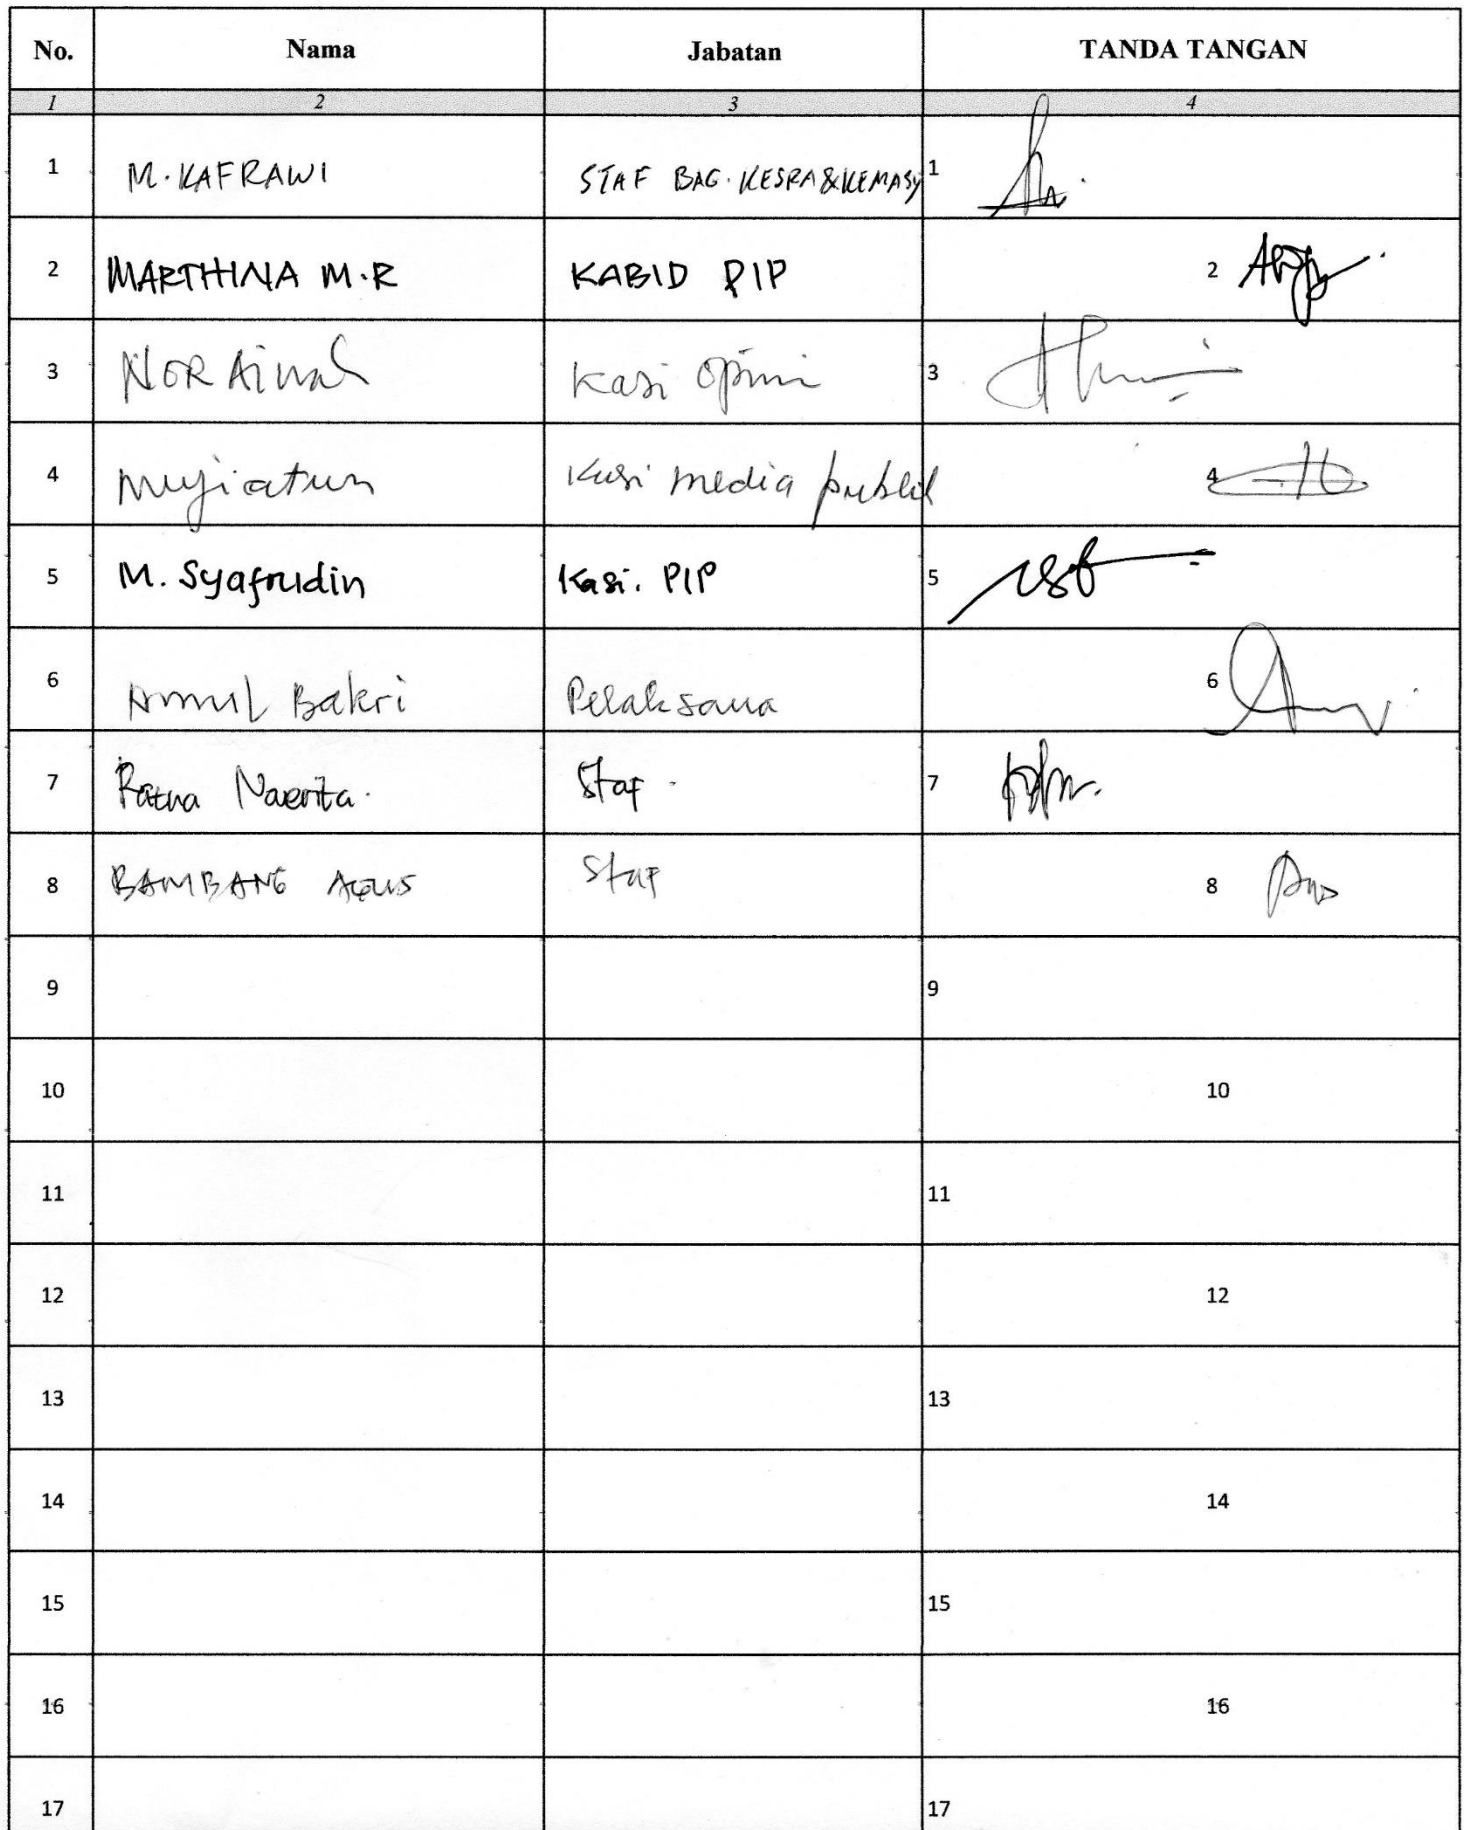 No. Nama Jabatan TANDA TANGAN
1 2 3 4
1 M. KAFRAWI STAF BAG. KESRA & KEMASY 1
2 MARTHINA M.R KABID PIP 2
3 NOR Ainah Kasi Opini 3
4 Mujiatun Kasi media publik 4
5 M. Syafrudin Kasi. PIP 5
6 Bakri Pelaksana 6
7 Ratna Staf 7
8 BAMBANG AGUS Staf 8
9 9
10 10
11 11
12 12
13 13
14 14
15 15
16 16
17 17